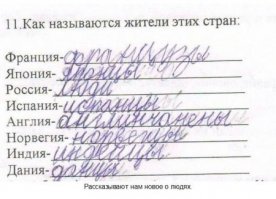 11.Как называются жители этих стран:
Франция- французы
Япония- японцы
Россия- люди
Испания- испанцы
Англия- англинчанены
Норвегия- норвегцы
Индия- индейцы
Дания- данцы
Рассказывают нам новое о людях